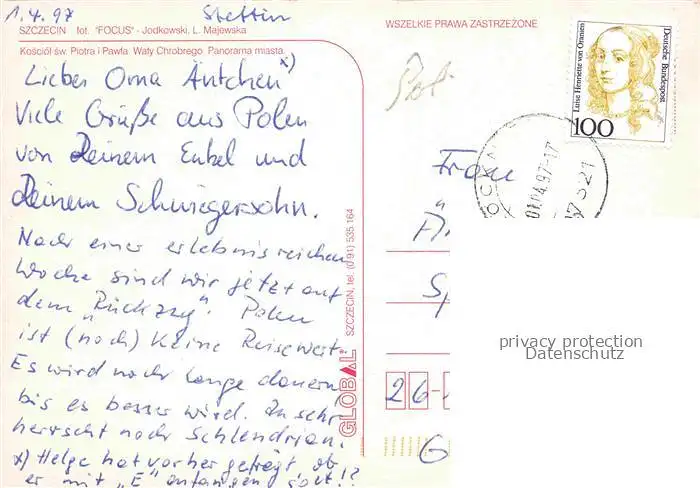 1.4.97 Stettin
SZCZECIN fot. "FOCUS" - Jodkowski, L. Majewska
Kościół św. Piotra i Pawła. Wały Chrobrego. Panorama miasta.
Lieber Oma Äntchen x)
Viele Grüße aus Polen
von Deinem Enkel und
Deinem Schwiegersohn.
Nach einer erlebnisreichen
Woche sind wir jetzt auf
dem "Rückzug". Polen
ist (noch) keine Reise wert.
Es wird noch lange dauern,
bis es besser wird. Zu sehr
herrscht noch Schlendrian.
x) Helge hat vorher gefragt ob
er mit "E" anfangen soll!?
SZCZECIN, tel. (0 91) 535 164
GLOBAL
WSZELKIE PRAWA ZASTRZEŻONE
Luise Henriette von Oranien
Deutsche Bundespost
100
01.04.97-17
Frau
26-
G
privacy protection
Datenschutz